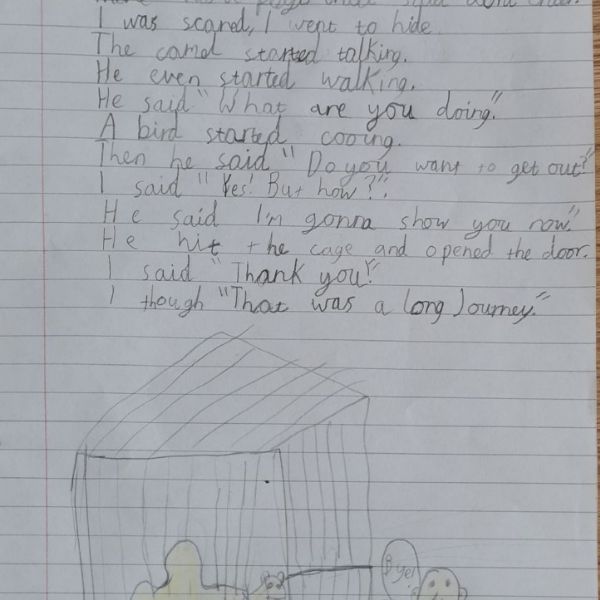 I was scared, I went to hide.
The camel started talking.
He even started walking.
He said "What are you doing."
A bird started cooing.
Then he said "Do you want to get out?"
I said "Yes! But how?".
He said I'm gonna show you now."
He hit the cage and opened the door.
I said "Thank you!"
I though "That was a long Journey."
Bye!